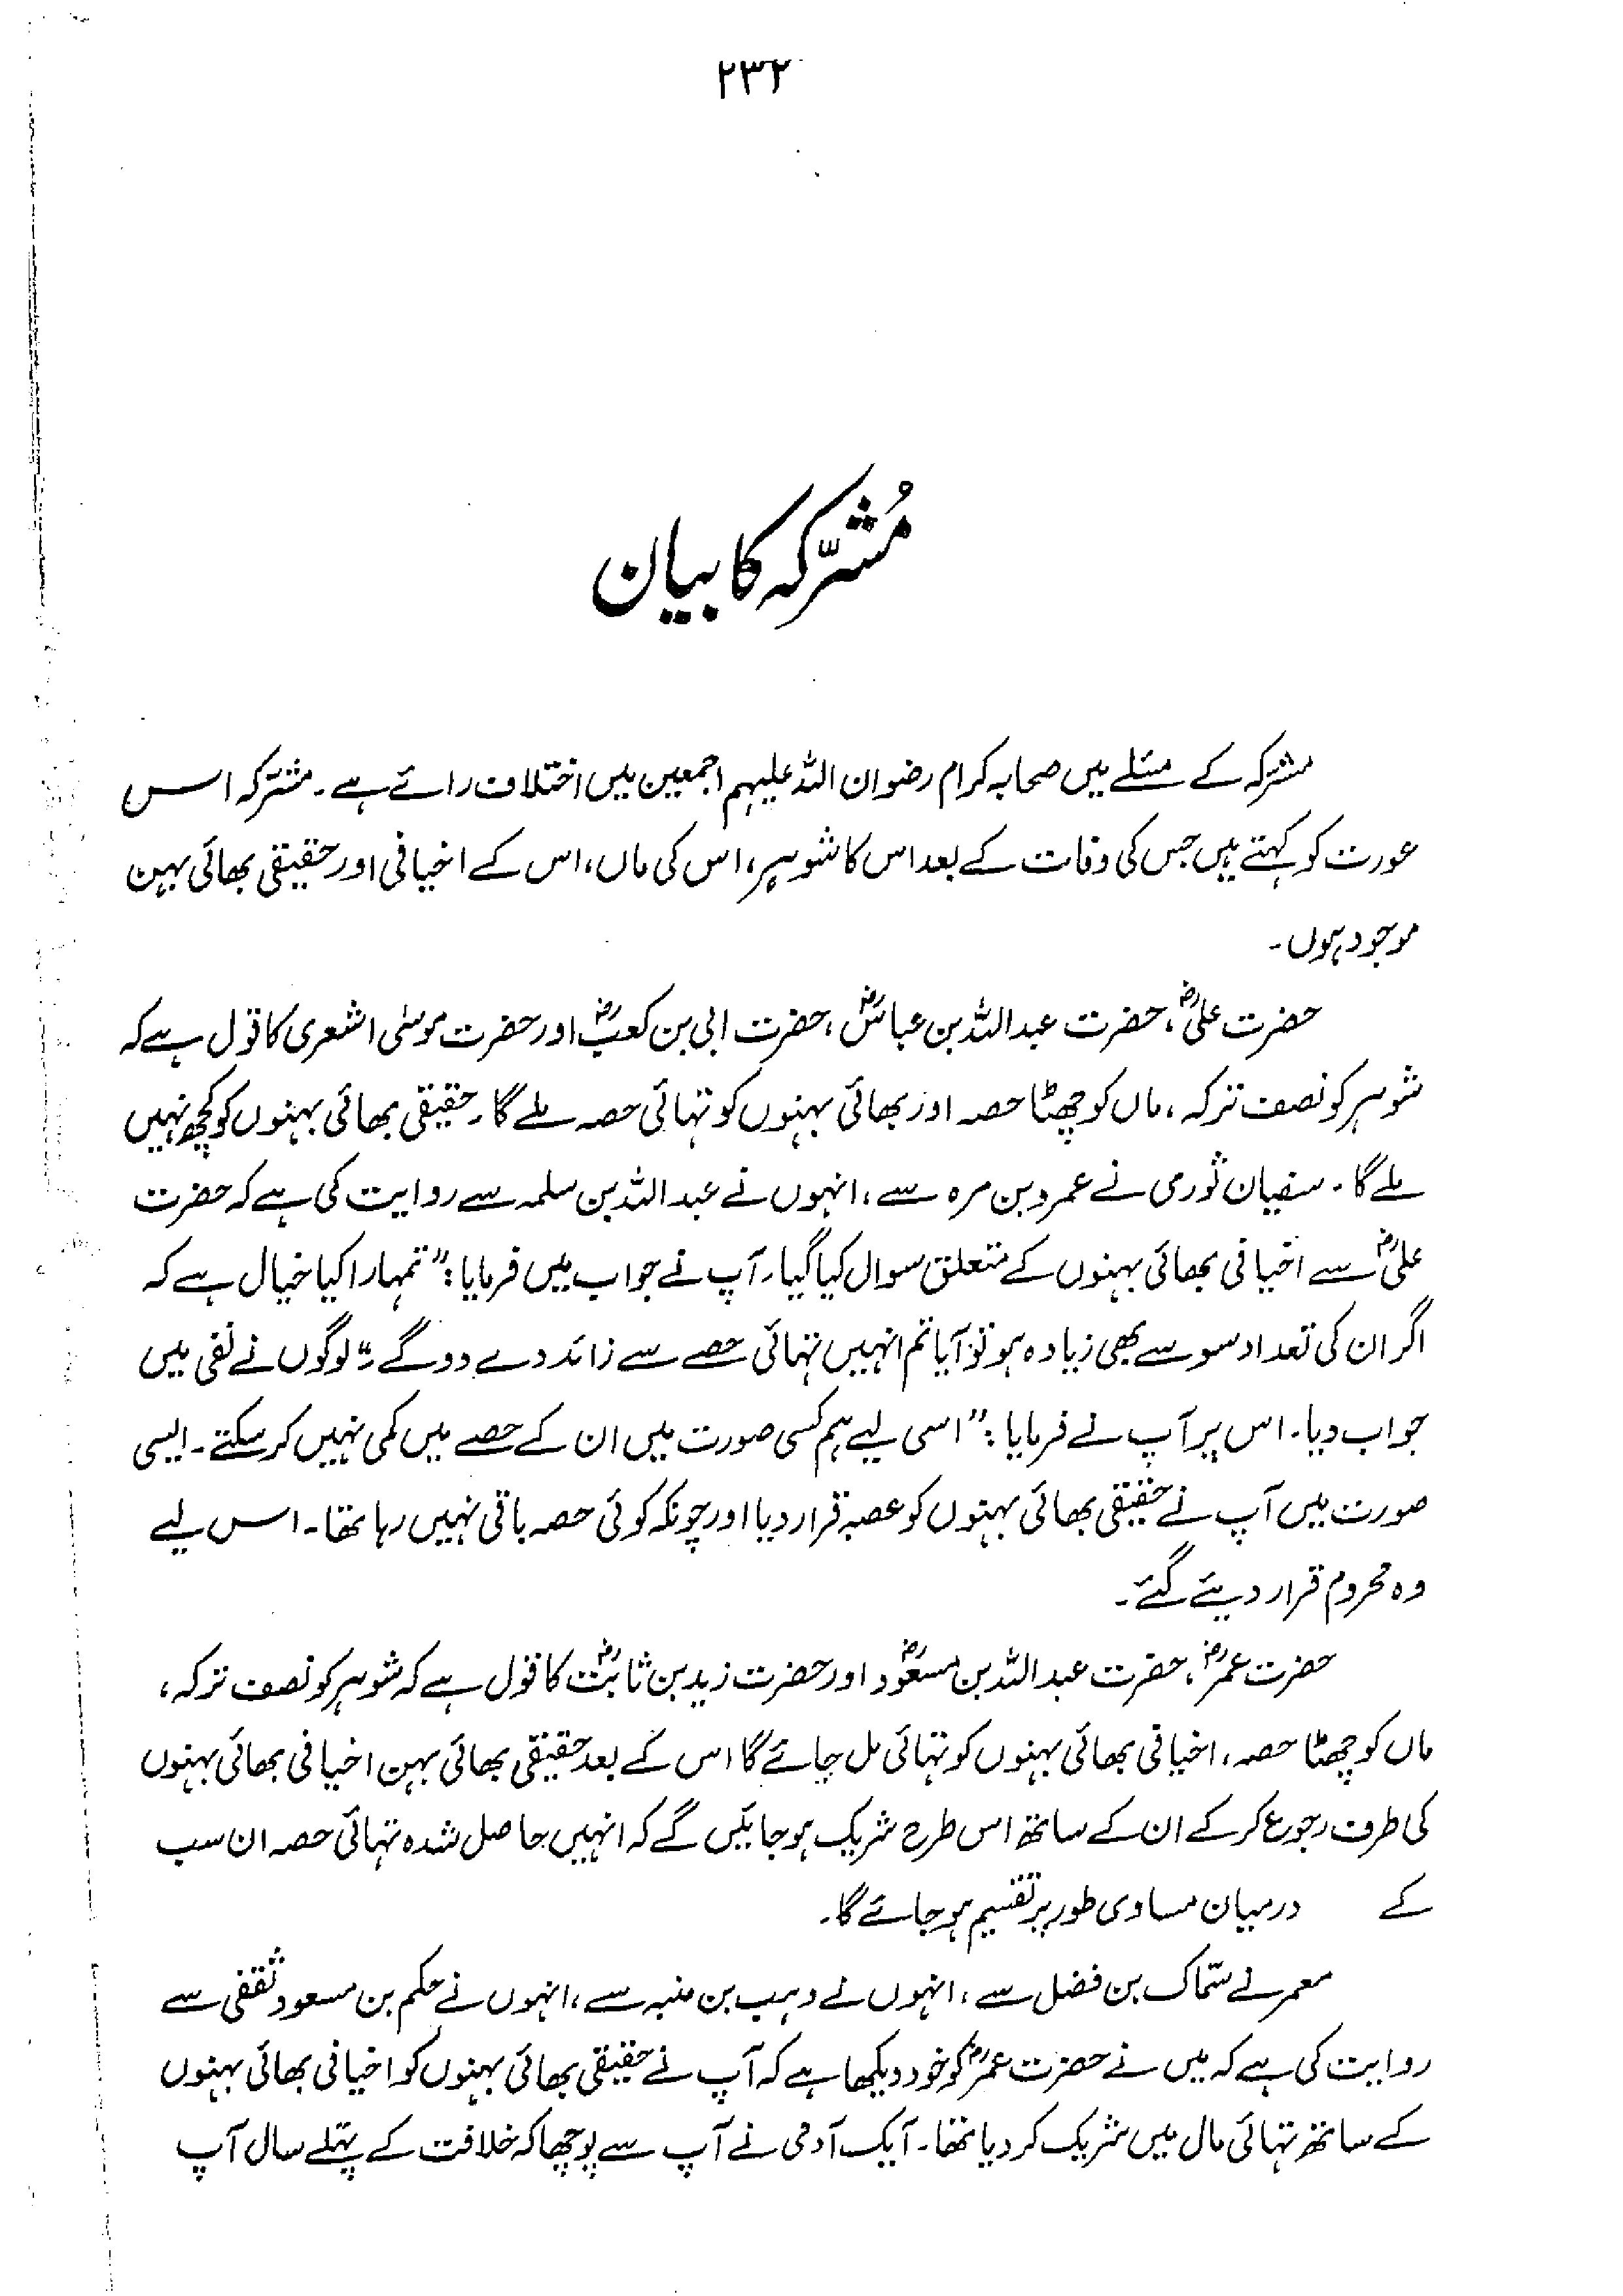 ۲۳۲
مُشَرّکہ کا بیان
مشرّکہ کے مسئلے میں صحابہ کرام رضوان اللہ علیہم اجمعین میں اختلاف رائے ہے۔ مشرّکہ اس
عورت کو کہتے ہیں جس کی وفات کے بعد اس کا شوہر، اس کی ماں، اس کے اخیافی اور حقیقی بھائی بہن
موجود ہوں۔
حضرت علیؓ، حضرت عبداللہ بن عباسؓ، حضرت ابی بن کعبؓ اور حضرت موسٰی اشعری کا قول ہے کہ
شوہر کو نصف ترکہ، ماں کو چھٹا حصہ اور بھائی بہنوں کو تہائی حصہ ملے گا۔ حقیقی بھائی بہنوں کو کچھ نہیں
ملے گا۔ سفیان ثوری نے عمرو بن مرہ سے، انہوں نے عبداللہ بن سلمہ سے روایت کی ہے کہ حضرت
علیؓ سے اخیافی بھائی بہنوں کے متعلق سوال کیا گیا۔ آپ نے جواب میں فرمایا: "تمہارا کیا خیال ہے کہ
اگر ان کی تعداد سو سے بھی زیادہ ہو تو آیا تم انہیں تہائی حصے سے زائد دے دو گے" لوگوں نے نفی میں
جواب دیا۔ اس پر آپ نے فرمایا: "اسی لیے ہم کسی صورت میں ان کے حصے میں کمی نہیں کر سکتے۔ ایسی
صورت میں آپ نے حقیقی بھائی بہنوں کو عصبہ قرار دیا اور چونکہ کوئی حصہ باقی نہیں رہا تھا۔ اس لیے
وہ محروم قرار دیئے گئے۔
حضرت عمرؓ، حضرت عبداللہ بن مسعودؓ اور حضرت زید بن ثابتؓ کا قول ہے کہ شوہر کو نصف ترکہ،
ماں کو چھٹا حصہ، اخیافی بھائی بہنوں کو تہائی مل جائے گا اس کے بعد حقیقی بھائی بہن اخیافی بھائی بہنوں
کی طرف رجوع کر کے ان کے ساتھ اس طرح شریک ہو جائیں گے کہ انہیں حاصل شدہ تہائی حصہ ان سب
کے درمیان مساوی طور پر تقسیم ہو جائے گا۔
معمر نے سمّاک بن فضل سے، انہوں نے وہب بن منبہ سے، انہوں نے حکم بن مسعود ثقفی سے
روایت کی ہے کہ میں نے حضرت عمرؓ کو خود دیکھا ہے کہ آپ نے حقیقی بھائی بہنوں کو اخیافی بھائی بہنوں
کے ساتھ تہائی مال میں شریک کر دیا تھا۔ ایک آدمی نے آپ سے پوچھا کہ خلافت کے پہلے سال آپ